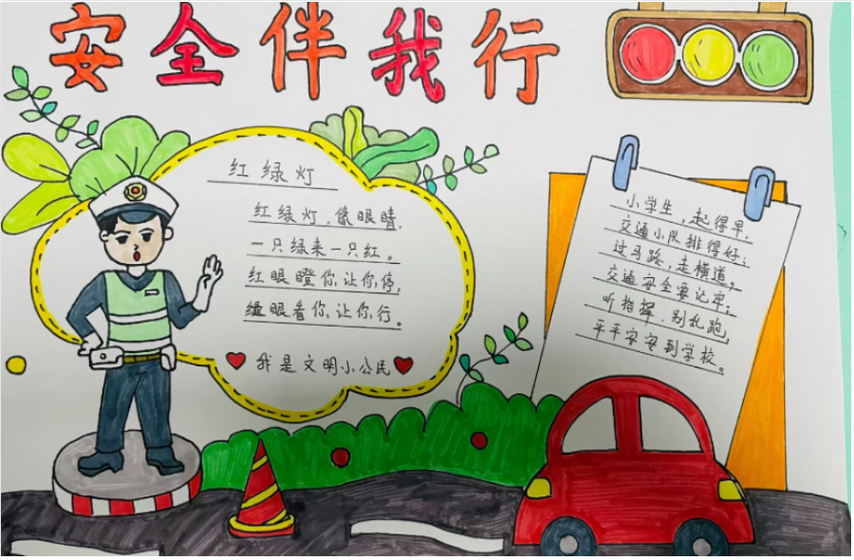 安全伴我行
红绿灯
红绿灯，像眼睛，
一只绿来一只红。
红眼瞪你，让你停，
绿眼看你，让你行。
我是文明小公民
小学生，起得早，
交通小队排得好；
过马路，走横道，
交通安全要记牢；
听指挥，别乱跑，
平平安安到学校。